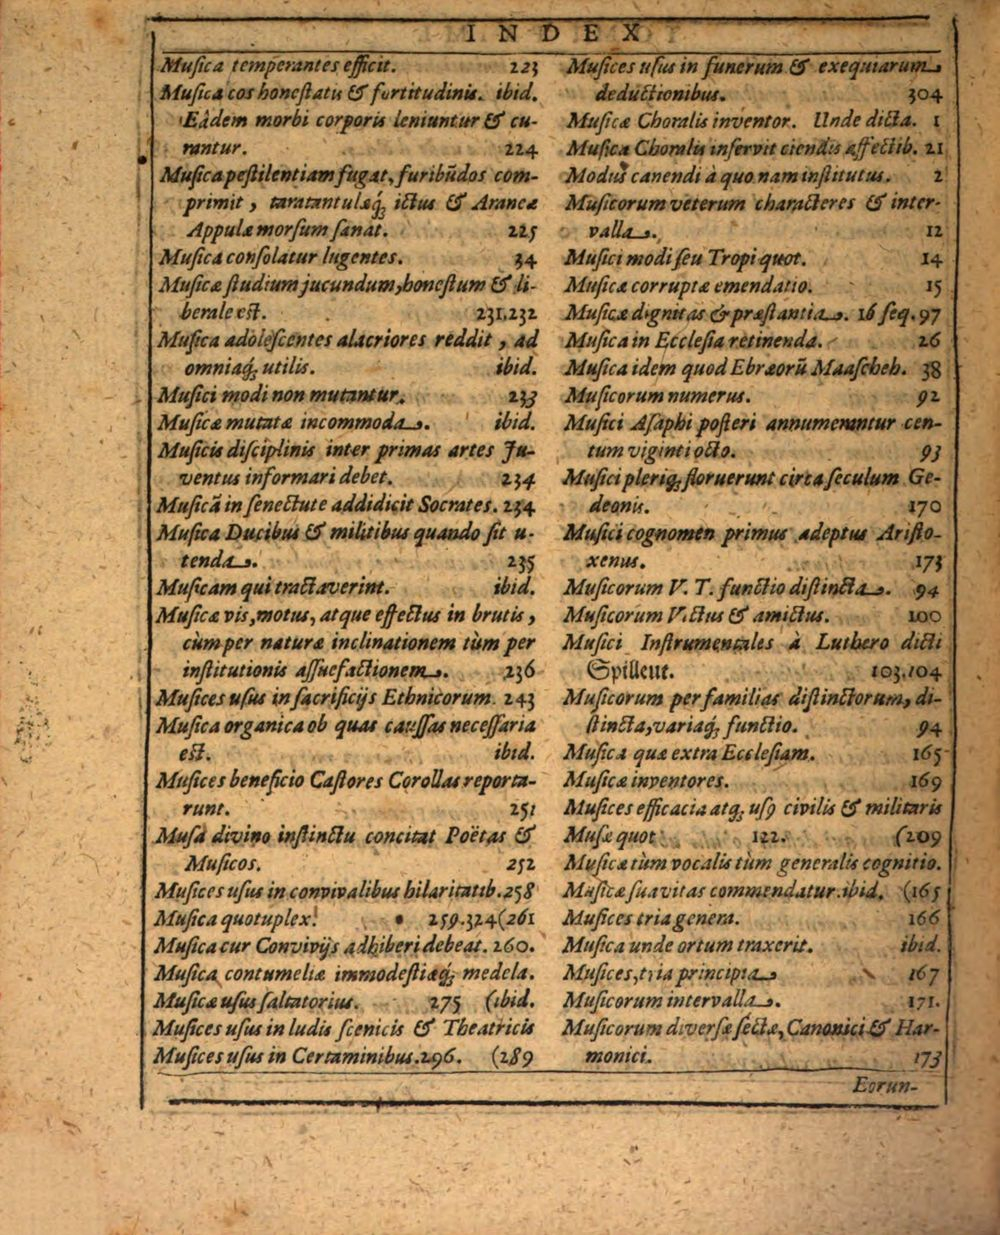 INDEX
Muſica temperantes efficit. 223
Muſica cos honeſtatis & fortitudinis. ibid.
Eâdem morbi corporis leniuntur & cu-
rantur. 224
Muſica peſtilentiam fugat, furibũdos com-
primit, taratantulæq́; ictus & Araneæ
Appulæ morſum ſanat. 225
Muſica conſolatur lugentes. 34
Muſicæ ſtudium jucundum, honeſtum & li-
berale eſt. 231.232
Muſica adoleſcentes alacriores reddit, ad
omniaq́; utilis. ibid.
Muſici modi non mutantur. 233
Muſicæ mutatæ incommoda. ibid.
Muſicis diſciplinis inter primas artes Ju-
ventus informari debet. 234
Muſicã in ſenectute addidicit Socrates. 234
Muſica Ducibus & militibus quando ſit u-
tenda. 235
Muſicam qui tractaverint. ibid.
Muſicæ vis, motus, atque effectus in brutis,
cùm per naturæ inclinationem tùm per
inſtitutionis aſſuefactionem. 236
Muſices uſus in ſacrificijs Ethnicorum. 243
Muſica organica ob quas cauſſas neceſſaria
eſt. ibid.
Muſices beneficio Caſtores Corollas reporta-
runt. 251
Muſa divino inſtinctu concitat Poëtas &
Muſicos. 252
Muſices uſus in convivalibus hilaritatib. 258
Muſica quotuplex. 259.324 (261
Muſica cur Convivijs adhiberi debeat. 260.
Muſica contumeliæ immodeſtiæq́; medela.
Muſicæ uſus ſaltatorius. 275 (ibid.
Muſices uſus in ludis ſcenicis & Theatricis
Muſices uſus in Certaminibus. 296. (289
Muſices uſus in funerum & exequiarum
deductionibus. 304
Muſicæ Choralis inventor. Unde dicta. 1
Muſica Choralis inſervit ciendis affectib. 21
Modus canendi à quo nam inſtitutus. 2
Muſicorum veterum characteres & inter-
valla. 12
Muſici modi ſeu Tropi quot. 14
Muſicæ corruptæ emendatio. 15
Muſicæ dignitas & præſtantia. 16 ſeq. 97
Muſica in Eccleſia retinenda. 26
Muſica idem quod Ebræorũ Maaſcheh. 38
Muſicorum numerus. 92
Muſici Aſaphi poſteri annumerantur cen-
tum viginti octo. 93
Muſici pleriq; floruerunt circa ſeculum Ge-
deonis. 170
Muſici cognomen primus adeptus Ariſto-
xenus. 173
Muſicorum V. T. functio diſtincta. 94
Muſicorum Victus & amictus. 100
Muſici Inſtrumentales à Luthero dicti
Spilleut. 103.104
Muſicorum per familias diſtinctorum, di-
ſtincta, variaq́; functio. 94
Muſica quæ extra Eccleſiam. 165
Muſicæ inventores. 169
Muſices efficacia atq; uſꝰ civilis & militaris
Muſæ quot 122. (209
Muſicæ tùm vocalis tùm generalis cognitio.
Muſicæ ſuavitas commendatur. ibid. (165
Muſices tria genera. 166
Muſica unde ortum traxerit. ibid.
Muſices, tria principia 167
Muſicorum intervalla. 171.
Muſicorum diverſæ ſectæ, Canonici & Har-
monici. 173
Eorun-